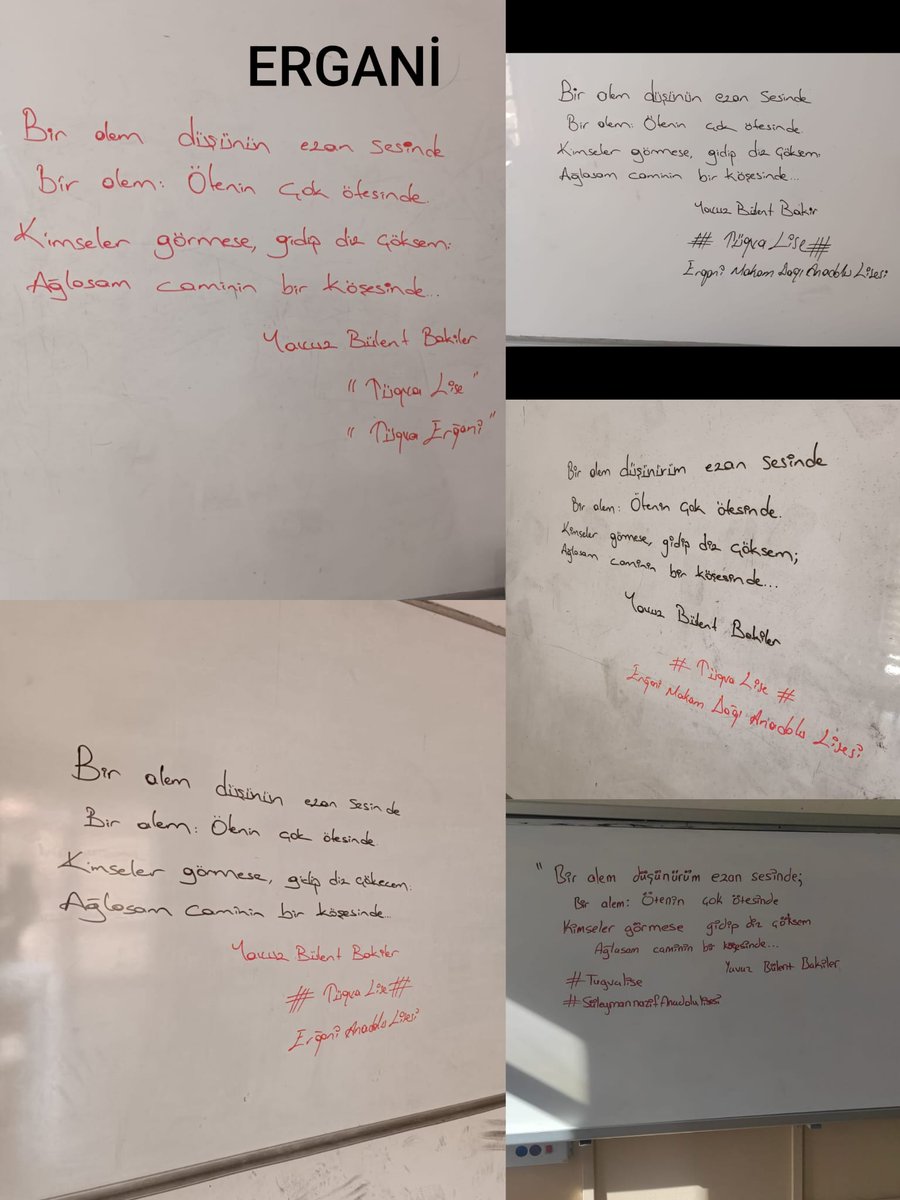 ERGANİ
Bir alem düşünün ezan sesinde
Bir alem: Ötenin çok ötesinde.
Kimseler görmese, gidip diz çöksem:
Ağlasam caminin bir köşesinde...
Yavuz Bülent Bakiler
"Tügva Lise"
"Tügva Erğani"
Bir alem düşünün ezan sesinde
Bir alem: Ötenin çok ötesinde.
Kimseler görmese, gidip diz çöksem:
Ağlasam caminin bir köşesinde...
Yavuz Bülent Bakir
# Tügva Lise #
Ergani Makam Dağı Anadolu Lisesi
Bir alem düşünürüm ezan sesinde
Bir alem: Ötenin çok ötesinde.
Kimseler görmese, gidip diz çöksem;
Ağlasam caminin bir köşesinde...
Yavuz Bülent Bakiler
# Tügva Lise #
Erğani Makam Dağı Anadolu Lisesi
Bir alem düşünün ezan sesinde
Bir alem: Ötenin çok ötesinde.
Kimseler görmese, gidip diz çökecem:
Ağlasam caminin bir köşesinde...
Yavuz Bülent Bakiler
# Tügva Lise #
Erğani Anadolu Lisesi
" Bir alem düşünürüm ezan sesinde;
Bir alem: Ötenin çok ötesinde
Kimseler görmese gidip diz çöksem
Ağlasam caminin bir köşesinde...
Yavuz Bülent Bakiler
#Tugvalise
#SüleymannazifAnadolulisesi